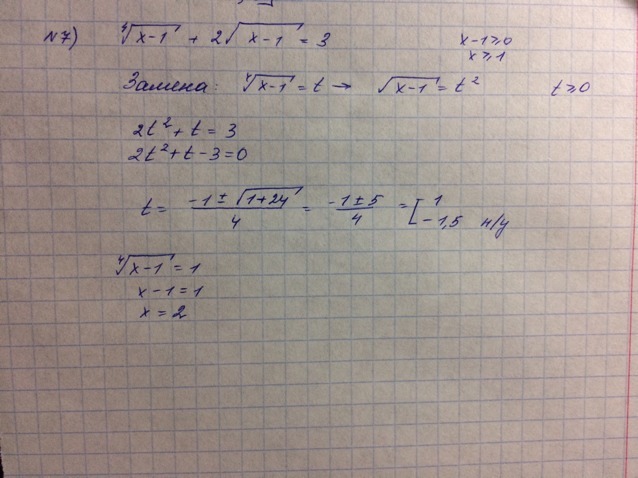 N7) ∜(x-1) + 2√(x-1) = 3 x-1≥0
x≥1
Замена: ∜(x-1) = t → √(x-1) = t² t≥0
2t² + t = 3
2t² + t - 3 = 0
t = (-1 ± √(1+24))/4 = (-1 ± 5)/4 = [ 1
-1,5 н/у
∜(x-1) = 1
x-1 = 1
x = 2